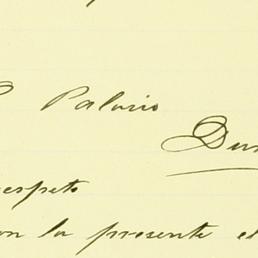 Palacio
Du
respeto
on la presente el